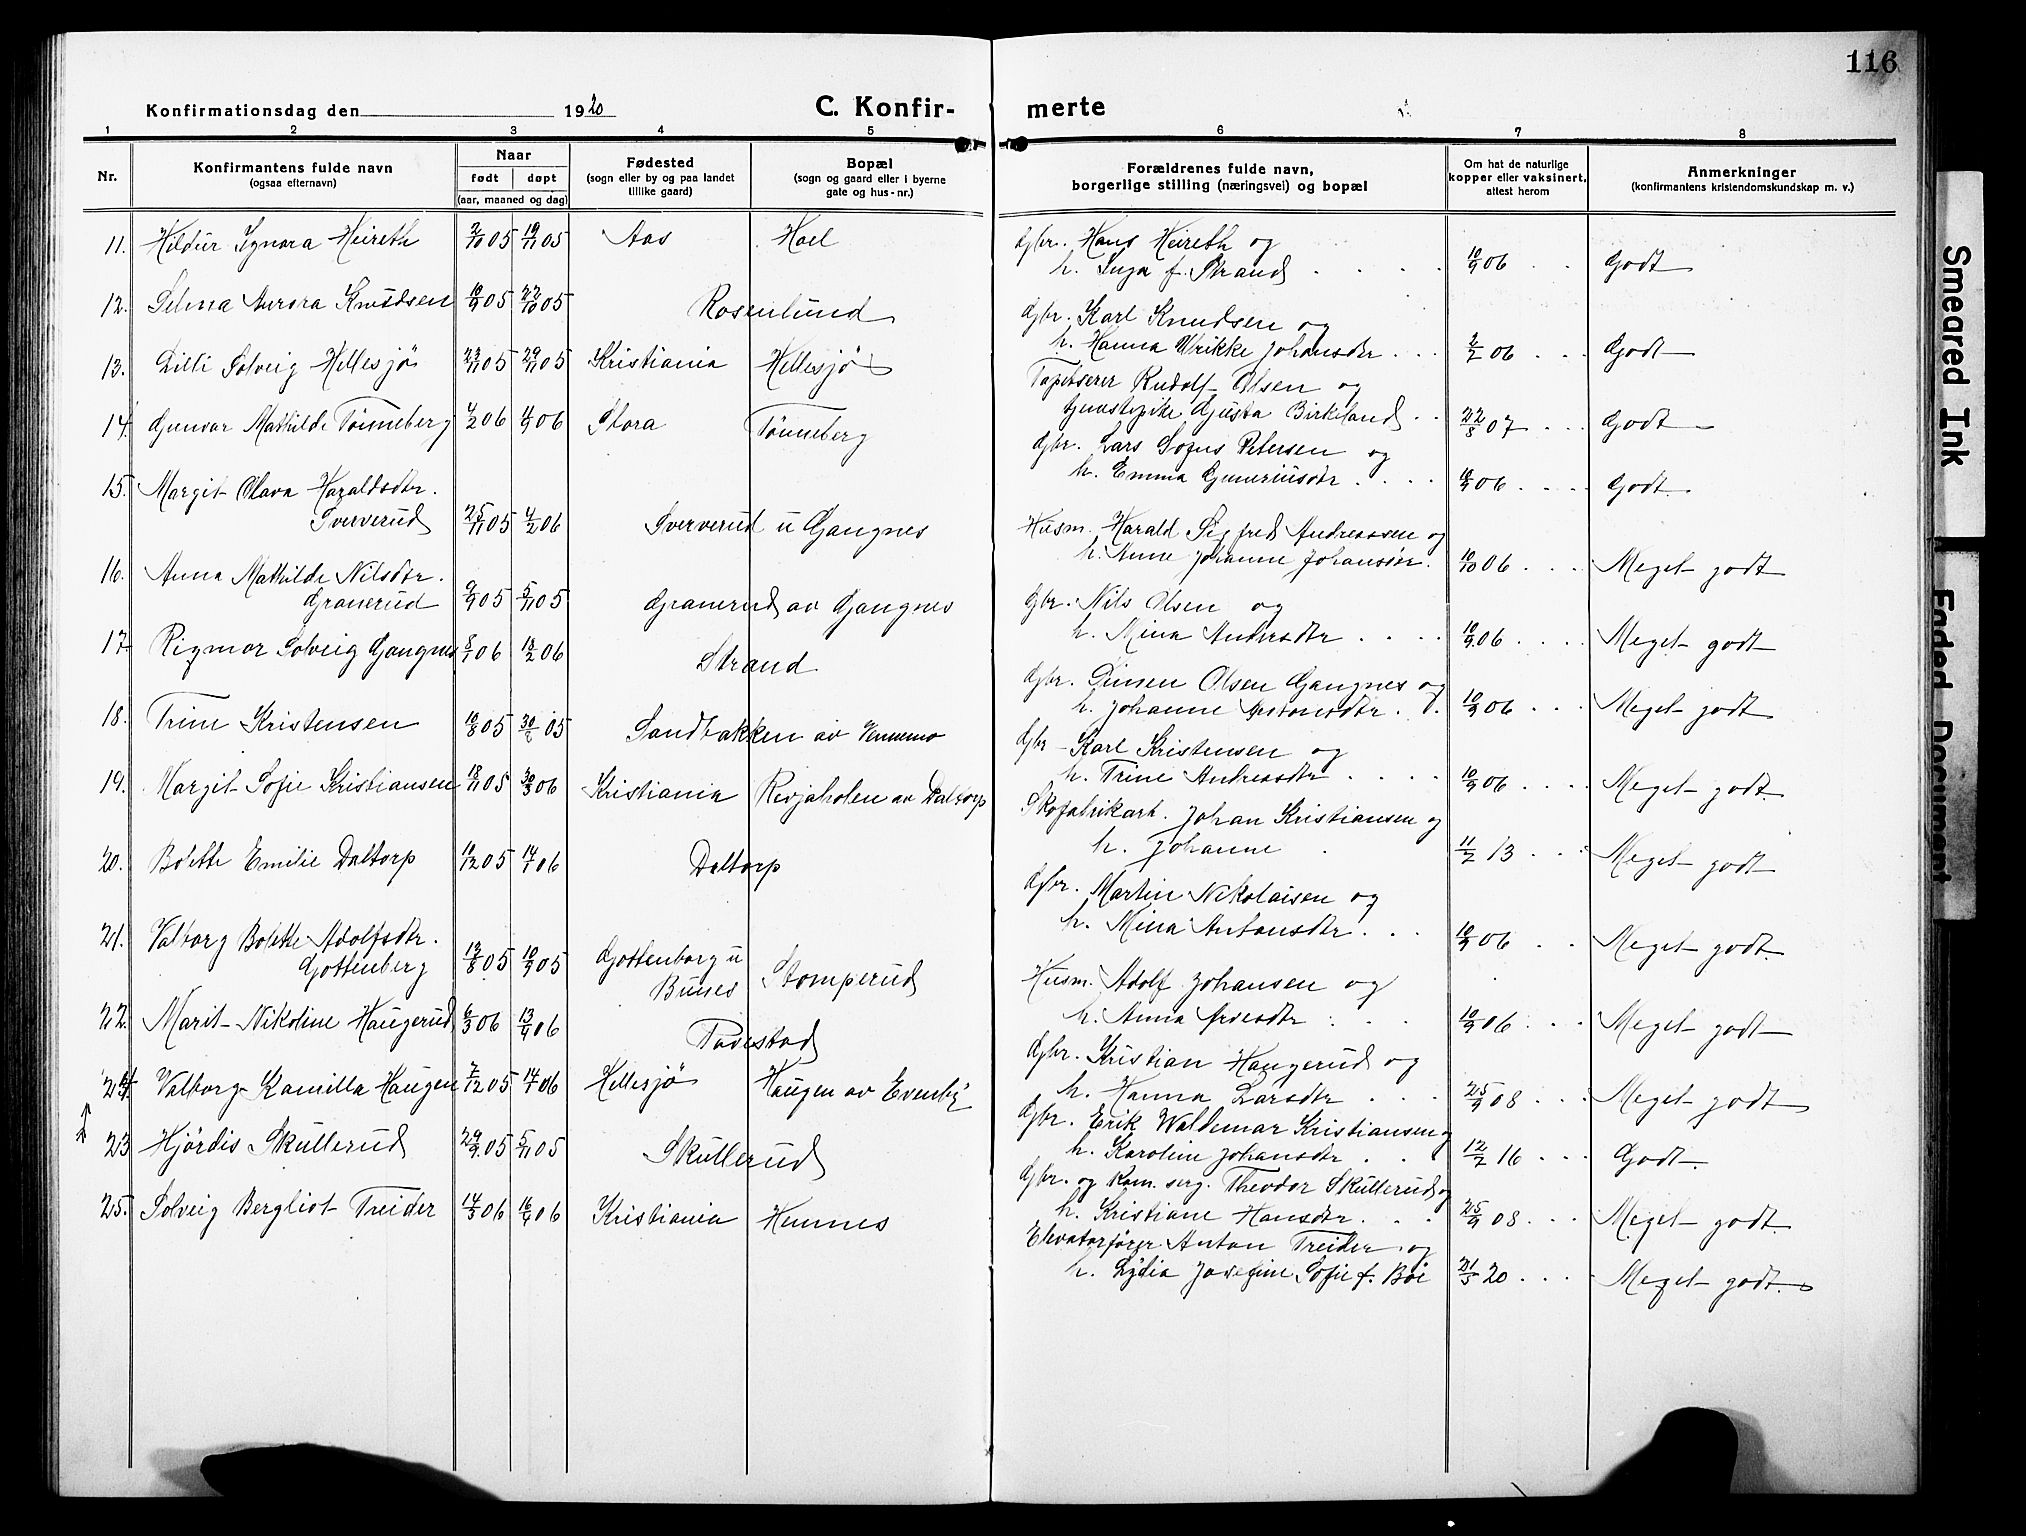 116
Konfirmationsdag den 1920 C. Konfirmerte
1 2 3 4 5 6 7 8
Nr.
Konfirmantens fulde navn
(ogsaa efternavn)
Naar
født døpt
(aar, maaned og dag)
Fødested
(sogn eller by og paa landet
tillike gaard)
Bopæl
(sogn og gaard eller i byerne
gate og hus-nr.)
Forældrenes fulde navn,
borgerlige stilling (næringsvei) og bopæl
Om hat de naturlige
kopper eller vaksinert,
attest herom
Anmerkninger
(konfirmantens kristendomskundskap m. v.)
11. Hildur Signora Heireth 2/10 05 19/11 05 Aas Hoel
Gbr. Hans Heireth og
h. Inga f. Strand 10/9 06 Godt
12. Selma Aurora Knudsen 10/9 05 22/10 05 Rosenlund
Gbr. Karl Knudsen og
h. Hanna Ulrikke Johansdtr 2/2 06 Godt
13. Lilli Solveig Hellesjø 23/11 05 29/11 05 Kristiania Hellesjø
Tapetserer Rudolf Olsen og
tjenestepike Gusta Birkeland 22/8 07 Godt
14. Gunvor Mathilde Tønneberg 4/2 06 4/9 06 Flora Tønneberg
Gbr. Lars Sofus Petersen og
h. Emma Guneriusdtr 10/9 06 Godt
15. Margit Olava Haraldsdtr.
Sververud 25/11 05 4/2 06 Sververud u Gangnes
Husm. Harald Sigfred Andreassen og
h. Anne Johanne Johansdtr. 10/10 06 Meget godt
16. Anna Mathilde Nilsdtr.
Granerud 9/9 05 5/11 05 Granerud av Gangnes
Gbr. Nils Olsen og
h. Mina Andersdtr 10/9 06 Meget godt
17. Rigmor Solveig Gangnes 8/1 06 18/2 06 Strand
Gbr. Simen Olsen Gangnes og
h. Johanne Antonsdtr. 10/9 06 Meget godt
18. Trine Kristensen 10/8 05 30/ 05 Sandbakken av Vennemo
Gbr Karl Kristensen og
h. Trine Andreasdtr 10/9 06 Meget godt
19. Margit Sofie Kristiansen 18/11 05 30/3 06 Kristiania Revjaholen av Daltorp
Skofabrikarb. Johan Kristiansen og
h. Johanne 11/2 13 Meget godt
20. Bolette Emilie Daltorp 10/12 05 14/1 06 Daltorp
Gbr. Martin Nikolaisen og
h. Mina Antonsdtr 10/9 06 Meget godt
21. Valborg Bolette Adolfsdtr.
Gottenberg 13/8 05 10/9 05 Gottenborg u
Buues Stomperud
Husm. Adolf Johansen og
h. Anna 10/9 06 Meget godt
22. Marit Nikoline Haugerud 6/3 06 13/4 06 Tovestad
Gbr. Kristian Haugerud og
h. Hanna Larsdtr 25/9 08 Meget godt
24. Valborg Kamilla Haugen 7/12 05 14/1 06 Hellesjø Haugen av Evenby
Gbr. Erik Waldemar Kristiansen og
h. Karoline Johansdtr 12/2 16 Godt.
23 Hjørdis Skullerud 29/9 05 5/11 05 Skullerud
Gbr. og Kom. serg. Theodor Skullerud og
h. Kristiane Hansdtr. 25/9 08 Meget godt
25. Solveig Bergliot Treider 14/3 06 16/4 06 Kristiania Hennes
Elevatorfører Anton Treider og
h. Lydia Josefine Sofie f. Bøe 21/5 20 Meget godt.
Smeared Ink
Faded Document